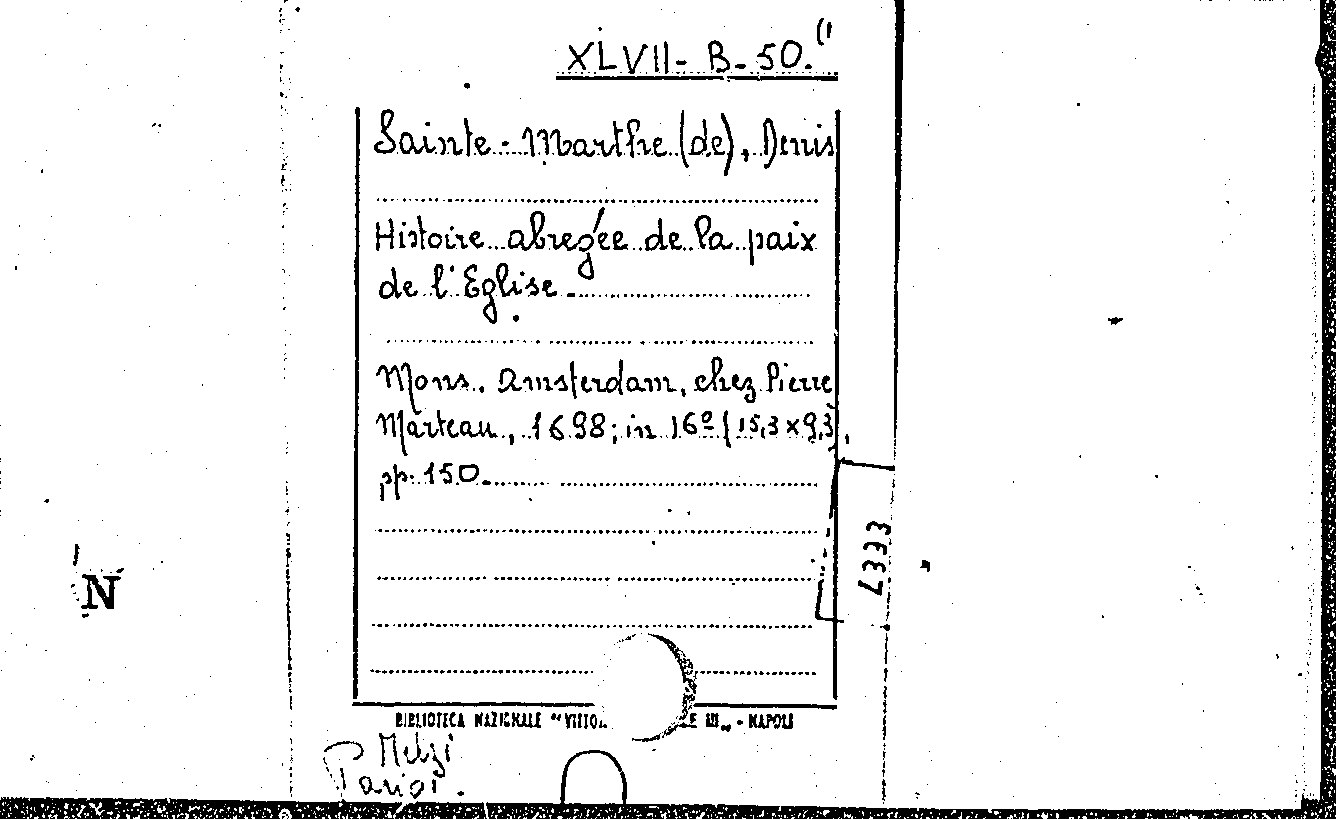 XLVII- B- 50. (1
Sainte-Marthe (de), Denis
Histoire abregée de la paix
de l'Eglise.
Mons. Amsterdam, chez Pierre
Marteau, 1698; in 16º (15,3 x 9,3),
pp. 150.
N
BIBLIOTECA NAZIONALE "VITTO E III„ - NAPOLI
Melzi
Parigi.